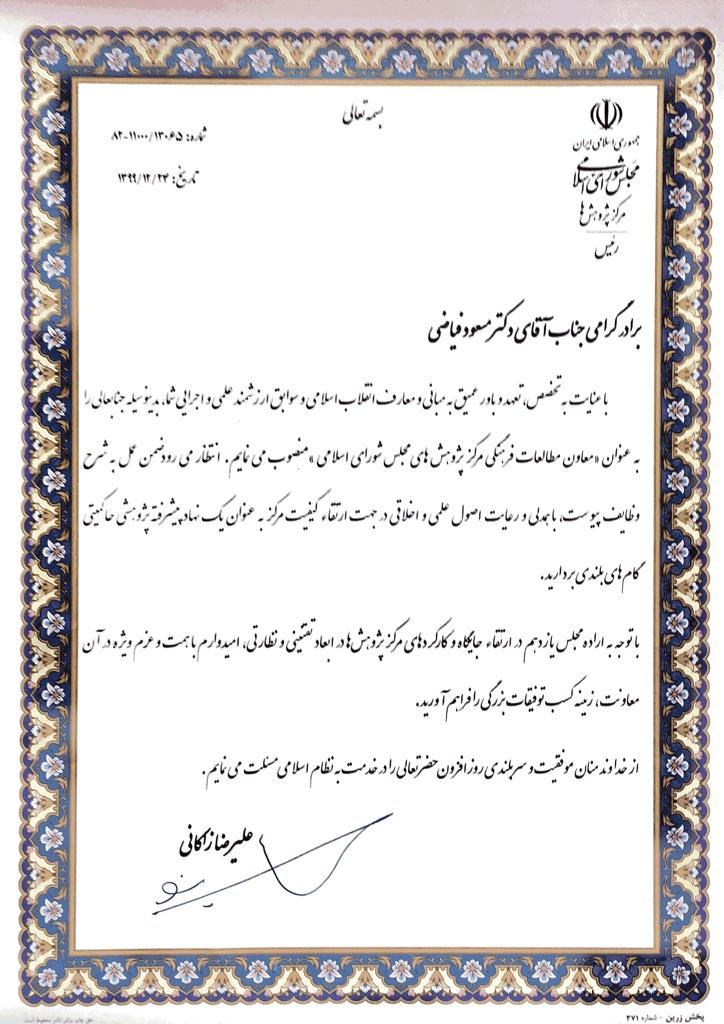 بسمه تعالی
جمهوری اسلامی ایران
مجلس شورای اسلامی
مرکز پژوهش‌ها
رئیس
شماره: ۸۲-۱۱۰۰۰/۱۳۰۶۵
تاریخ: ۱۳۹۹/۱۲/۲۴
برادر گرامی جناب آقای دکتر مسعود فیاضی
با عنایت به تخصص، تعهد و باور عمیق به مبانی و معارف انقلاب اسلامی و سوابق ارزشمند علمی و اجرایی شما، بدینوسیله جنابعالی را
به عنوان «معاون مطالعات فرهنگی مرکز پژوهش های مجلس شورای اسلامی» منصوب می نمایم. انتظار می رود ضمن عمل به شرح
وظایف پیوست، با همدلی و رعایت اصول علمی و اخلاقی در جهت ارتقاء کیفیت مرکز به عنوان یک نهاد پیشرفته پژوهشی حاکمیتی
گام های بلندی بردارید.
با توجه به اراده مجلس یازدهم در ارتقاء جایگاه و کارکردهای مرکز پژوهش ها در ابعاد تقنینی و نظارتی، امیدوارم با همت و عزم ویژه در آن
معاونت، زمینه کسب توفیقات بزرگی را فراهم آورید.
از خداوند منان موفقیت و سربلندی روزافزون حضرتعالی را در خدمت به نظام اسلامی مسئلت می نمایم.
علیرضا زاکانی
پخش زرین - شماره ۲۷۱
حق چاپ برای ناشر محفوظ است.